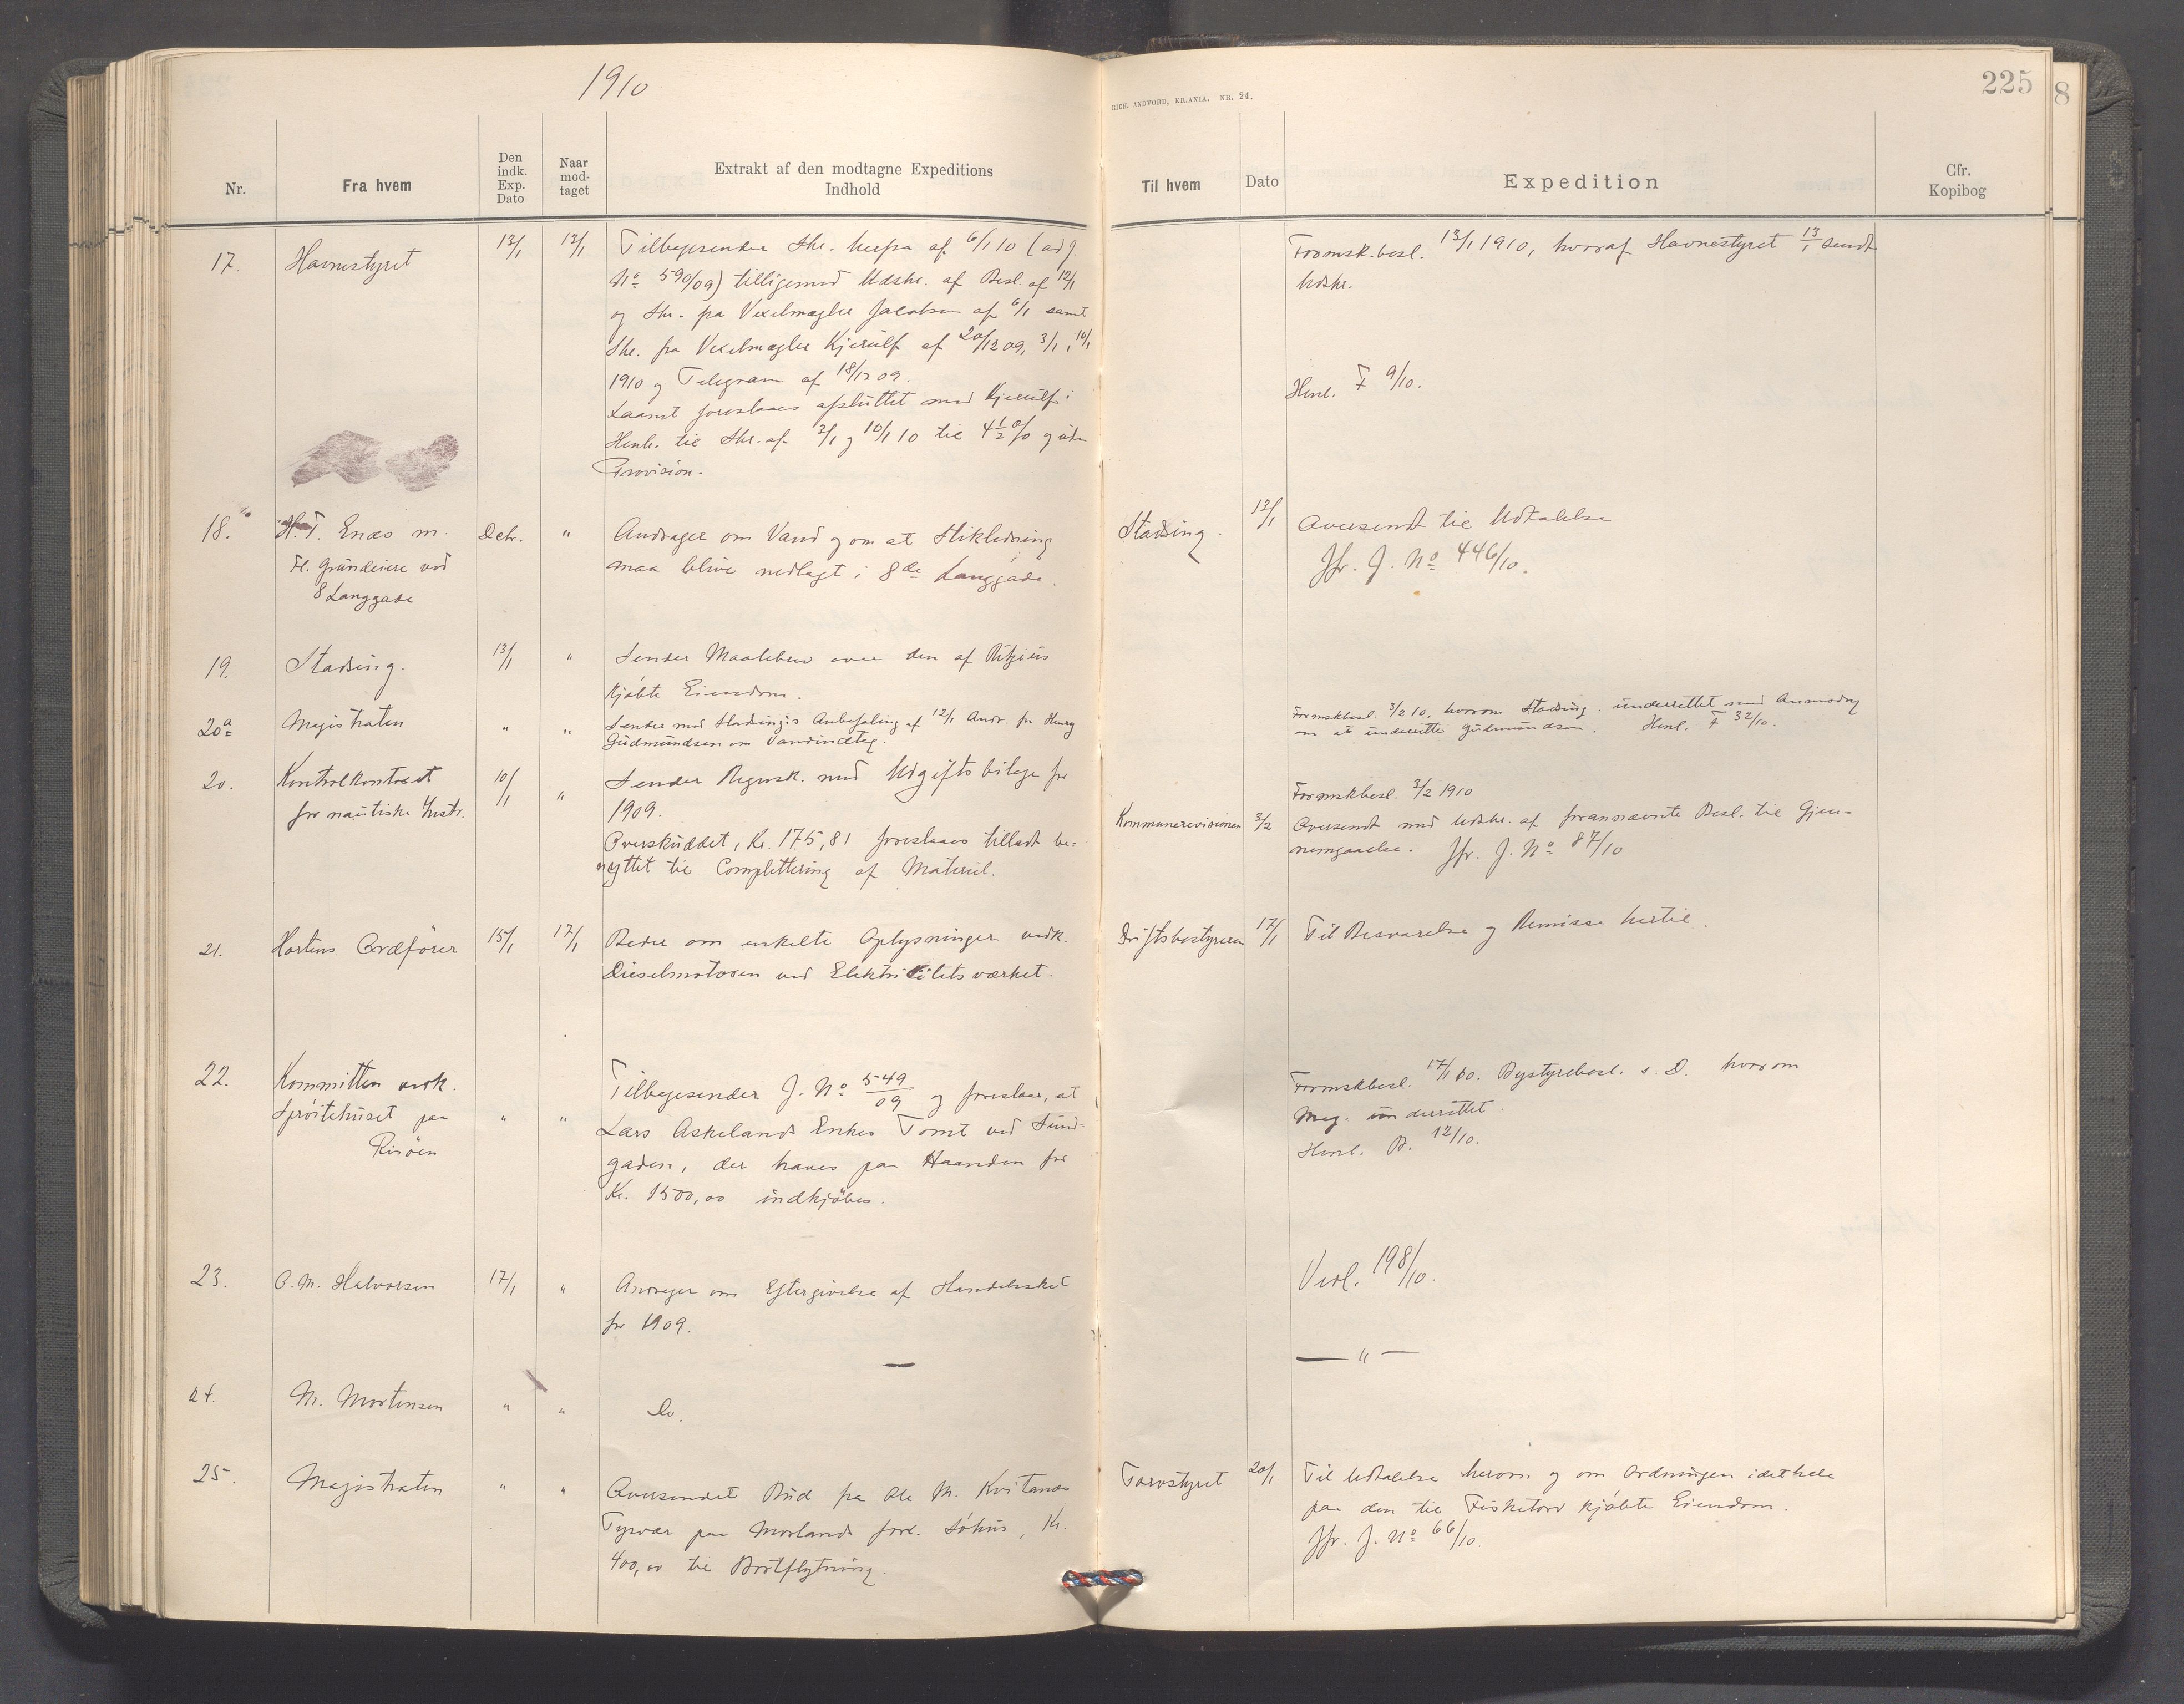 1910
RICH. ANDVORD, KR.ANIA. NR. 24.
225
8
Nr.
Fra hvem
Den indk. Exp. Dato
Naar mod-taget
Extrakt af den modtagne Expeditions Indhold
Til hvem
Dato
Expedition
Cfr. Kopibog
17. Havnestyret 13/1 13/1 Tilbagesender Skr. herfra af 6/1 10 (ad J.
No 590/09) tilligemed Udskr. af Besl. af 12/1
og Skr. fra Vexelmægler Jacobsen af 6/1 samt
Skr. fra Vexelmægler Kjerulf af 20/12 09, 3/1, 10/1
1910 og Telegram af 18/12 09.
Laanet foreslaaes afsluttet med Kjerulf i
Henh. til Skr. af 3/1 og 10/1 10 til 4 1/2 % og uden
Provision.
Formsk.besl. 13/1 1910, hvoraf Havnestyret 13/1 sendt
Udskr.
Henl. F 9/10.
18. H. T. Enæs m. Debr. " Andrager om Vand og om at Stikledning
Fl. Grundeiere ved maa blive nedlagt i 8de Langgade.
8 Langgade
Stadsing. 13/1 Oversendt til Udtalelse
Jfr. J. No 446/10.
19. Stadsing. 13/1 " Sender Maalebrev over den af
kjøbte Eiendom.
20a Magistraten " " Sender med Stadsing's Anbefaling af 12/1 Andr. fra Henry
Gudmundsen om Vandindtag.
Formskbesl. 3/2 10, hvorom Stadsing. underrettet med Anmodng
om at underrette Gudmundsen. Henl. F 32/10.
20. Kontrolkontoret 10/1 " Sender Regnsk. med Udgiftsbilage for
for nautiske Instr. 1909.
Overskuddet, Kr. 175,81 foreslaaes tilladt be-
nyttet til Complettering af Materiel.
Formskbesl. 3/2 1910
Kommunerevisionen 3/2 Oversendt med Udskr. af forannævnte Besl. til Gjen-
nemgaaelse. Jfr. J. No 87/10
21. Hortens Ordfører 15/1 17/1 Beder om enkelte Oplysninger vedk.
Dieselmotoren ved Elektricitetsværket.
Driftsbestyreren 17/1 Til Besvarelse og Remisse hertil.
22. Kommitten vedk. " " Tilbagesender J. No 549/09 og foreslaar, at
Sprøitehuset paa Lars Askelands Enkes Tomt ved Sund-
Risøen gaden, der haves paa Haanden for
Kr. 1500,00 indkjøbes.
Formskbesl. 17/1 10. Bystyrebesl. s. D. hvorom
Mag. underrettet.
Henl. B. 12/10.
23. O. M. Halvorsen 17/1 " Andrager om Eftergivelse af Handelsskat
for 1909.
Vedl. 198/10.
— " —
24. M. Mortensen " " Do.
25. Magistraten " " Oversendt Bud fra Ole M. Kvitanæs
Tysvær paa Morlands ford. Søhus, Kr.
400,00 til Bortflytning.
Torvstyret 20/1 Til Udtalelse herom og om Ordningen idethele
paa den til Fisketorv kjøbte Eiendom.
Jfr. J. No 66/10.